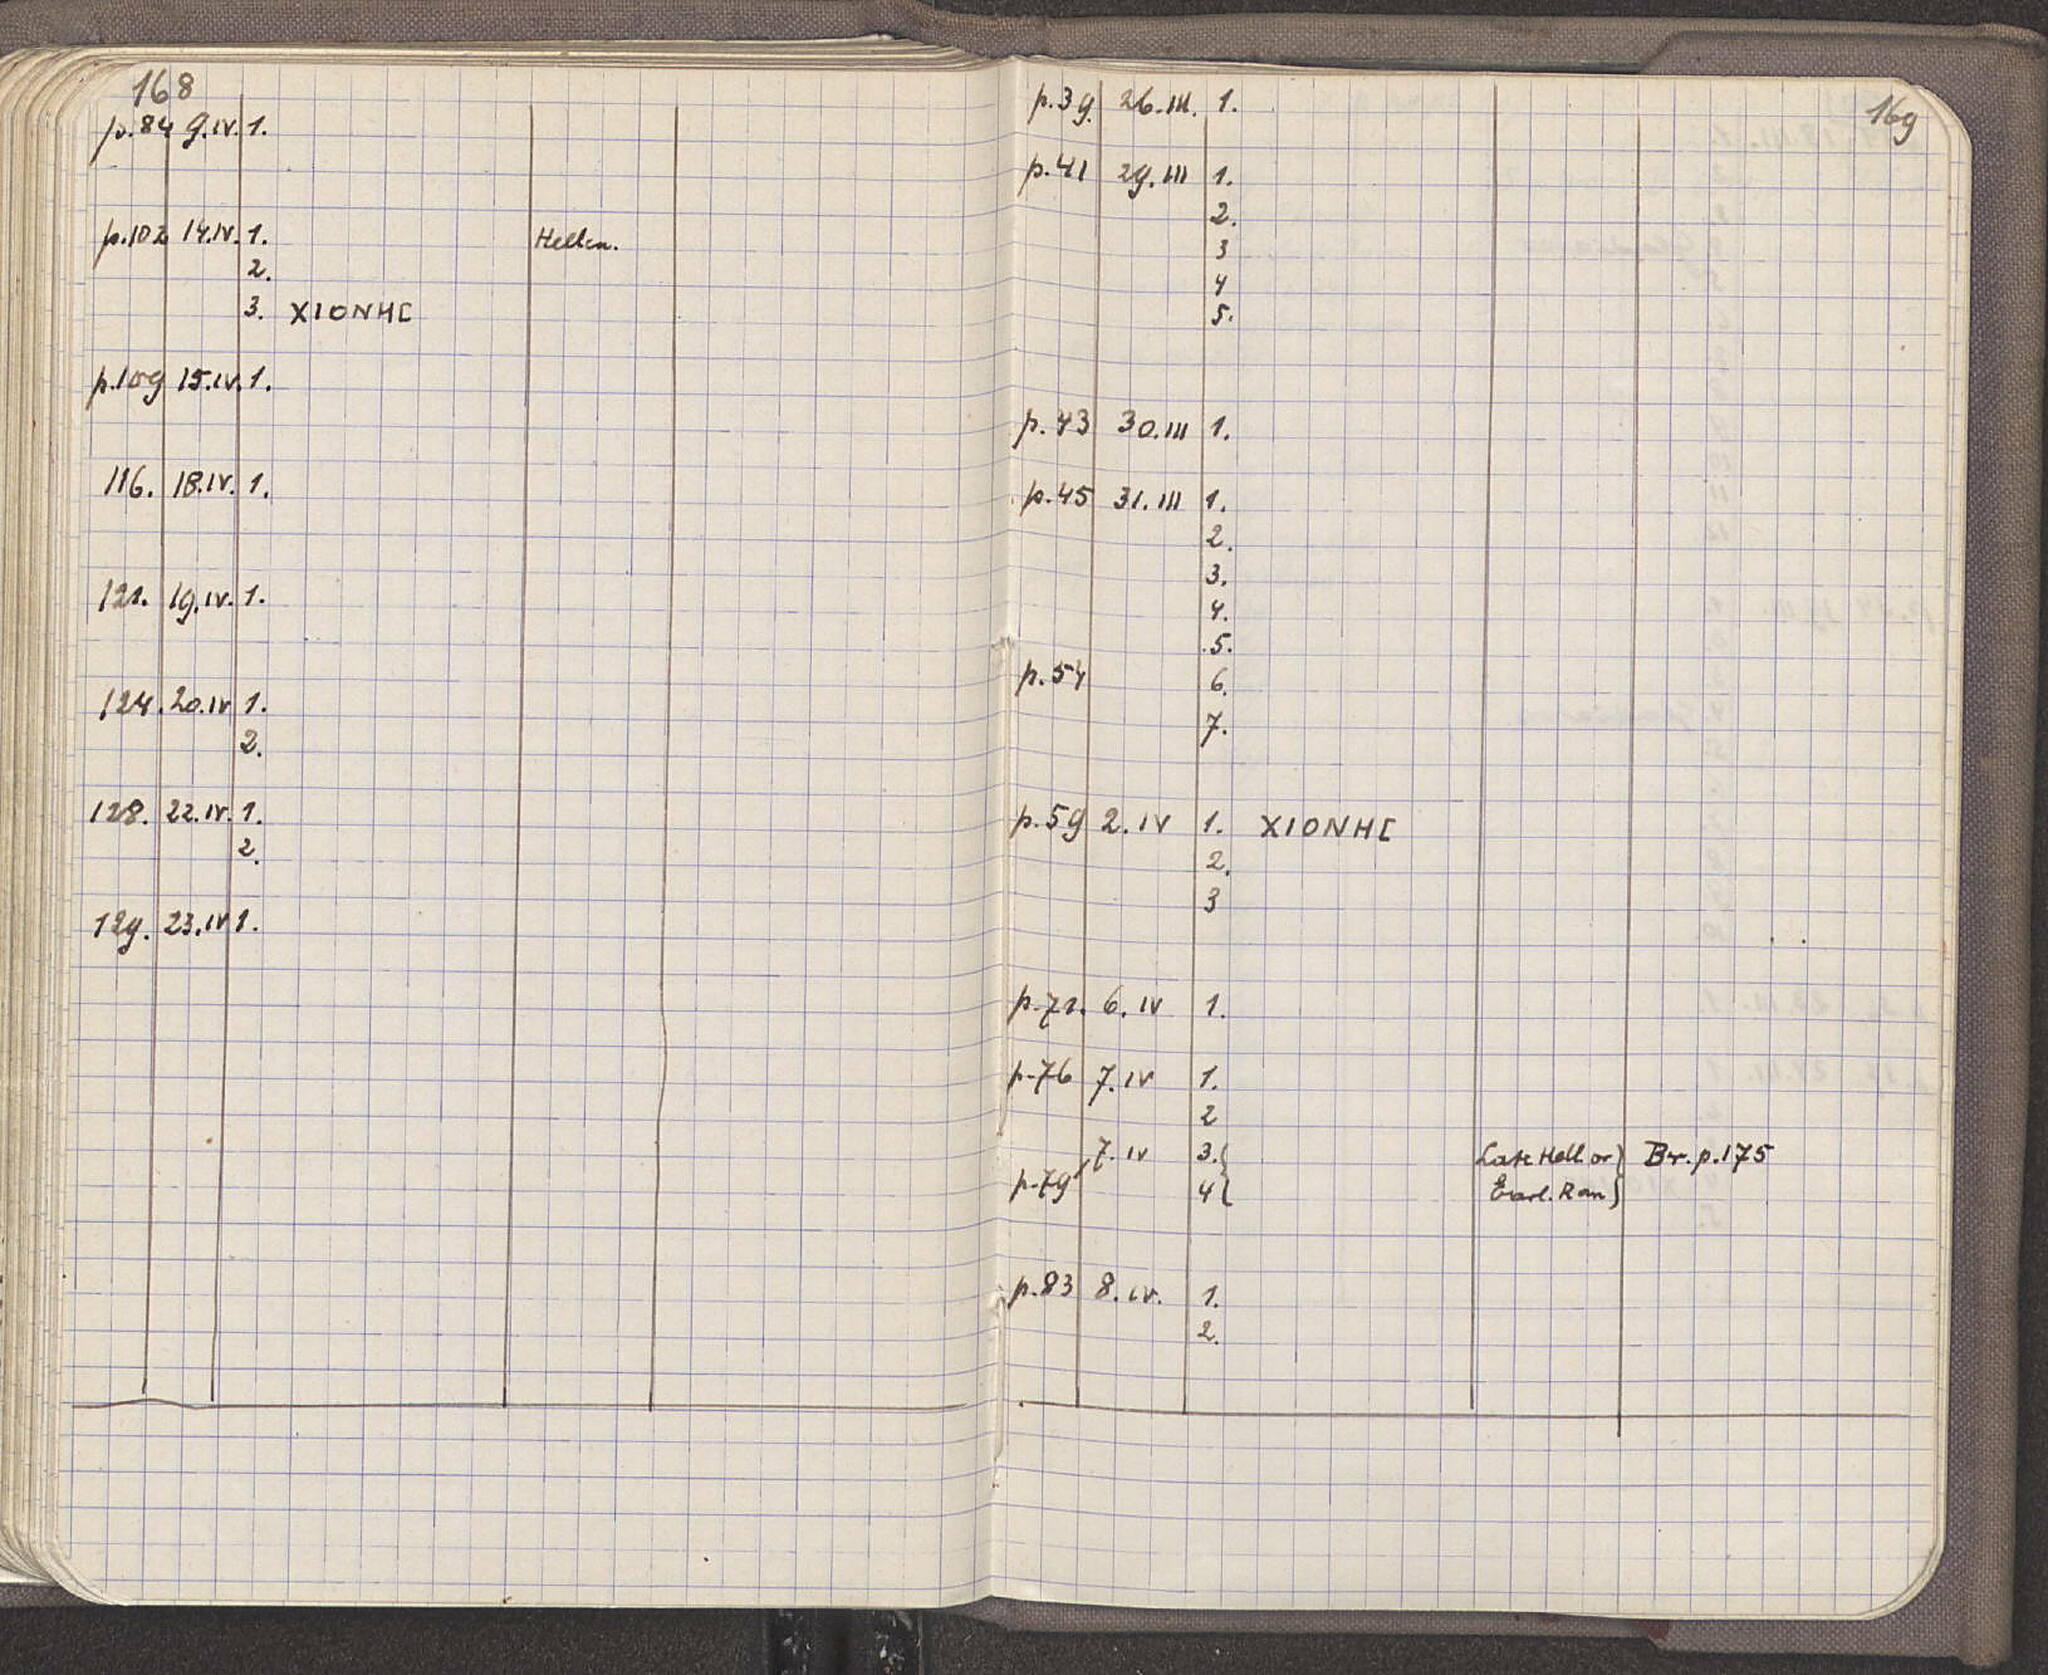 168
p.84 9.IV. 1.
p.102 14.IV. 1. Hellen.
2.
3. XIONHC
p.109 15.IV. 1.
116. 18.IV. 1.
121. 19.IV. 1.
124. 20.IV 1.
2.
128. 22.IV. 1.
2.
129. 23.IV 1.
169
p.39. 26.III. 1.
p.41 29.III 1.
2.
3
4
5.
p.43 30.III 1.
p.45 31.III 1.
2.
3.
4.
5.
p.54 6.
7.
p.59 2.IV 1. XIONHC
2.
3
p.71. 6.IV 1.
p.76 7.IV 1.
2
7.IV 3.{ Late Hell. or} Br. p.175
p.79 4{ Earl. Rom}
p.83 8.IV. 1.
2.